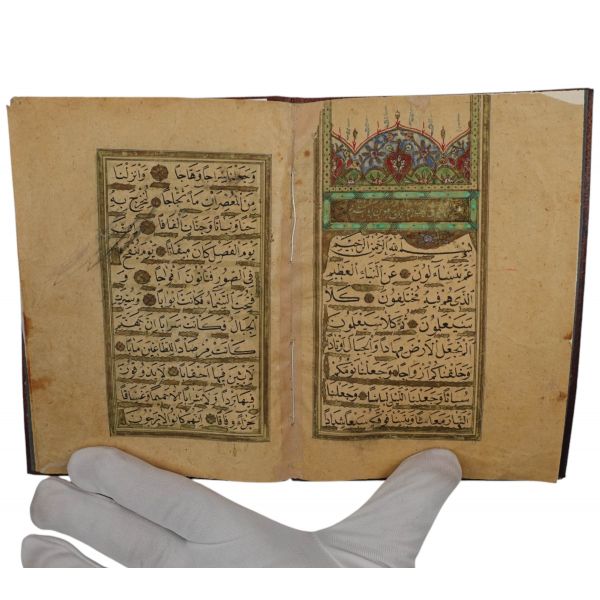 بِسْمِ اللهِ الرَّحْمٰنِ الرَّحِيمِ
عَمَّ يَتَسَاءَلُونَ عَنِ النَّبَإِ الْعَظِيمِ
الَّذِي هُمْ فِيهِ مُخْتَلِفُونَ كَلَّا
سَيَعْلَمُونَ ثُمَّ كَلَّا سَيَعْلَمُونَ
اَلَمْ نَجْعَلِ الْاَرْضَ مِهَادًا وَالْجِبَالَ اَوْتَادًا
وَخَلَقْنَاكُمْ اَزْوَاجًا وَجَعَلْنَا نَوْمَكُمْ
سُبَاتًا وَجَعَلْنَا اللَّيْلَ لِبَاسًا وَجَعَلْنَا
النَّهَارَ مَعَاشًا وَبَنَيْنَا فَوْقَكُمْ سَبْعًا شِدَادًا
وَجَعَلْنَا سِرَاجًا وَهَّاجًا وَاَنْزَلْنَا
مِنَ الْمُعْصِرَاتِ مَاءً ثَجَّاجًا لِنُخْرِجَ بِهِ
حَبًّا وَنَبَاتًا وَجَنَّاتٍ اَلْفَافًا اِنَّ
يَوْمَ الْفَصْلِ كَانَ مِيقَاتًا يَوْمَ يُنْفَخُ
فِي الصُّورِ فَتَأْتُونَ اَفْوَاجًا وَ
فُتِحَتِ السَّمَاءُ فَكَانَتْ اَبْوَابًا وَسُيِّرَتِ
الْجِبَالُ فَكَانَتْ سَرَابًا اِنَّ جَهَنَّمَ
كَانَتْ مِرْصَادًا لِلطَّاغِينَ مَآبًا
لَابِثِينَ فِيهَا اَحْقَابًا لَا يَذُوقُونَ
فِيهَا بَرْدًا وَلَا شَرَابًا اِلَّا حَمِيمًا وَغَسَّاقًا
جَزَاءً وِفَاقًا اِنَّهُمْ كَانُوا لَا يَرْجُونَ